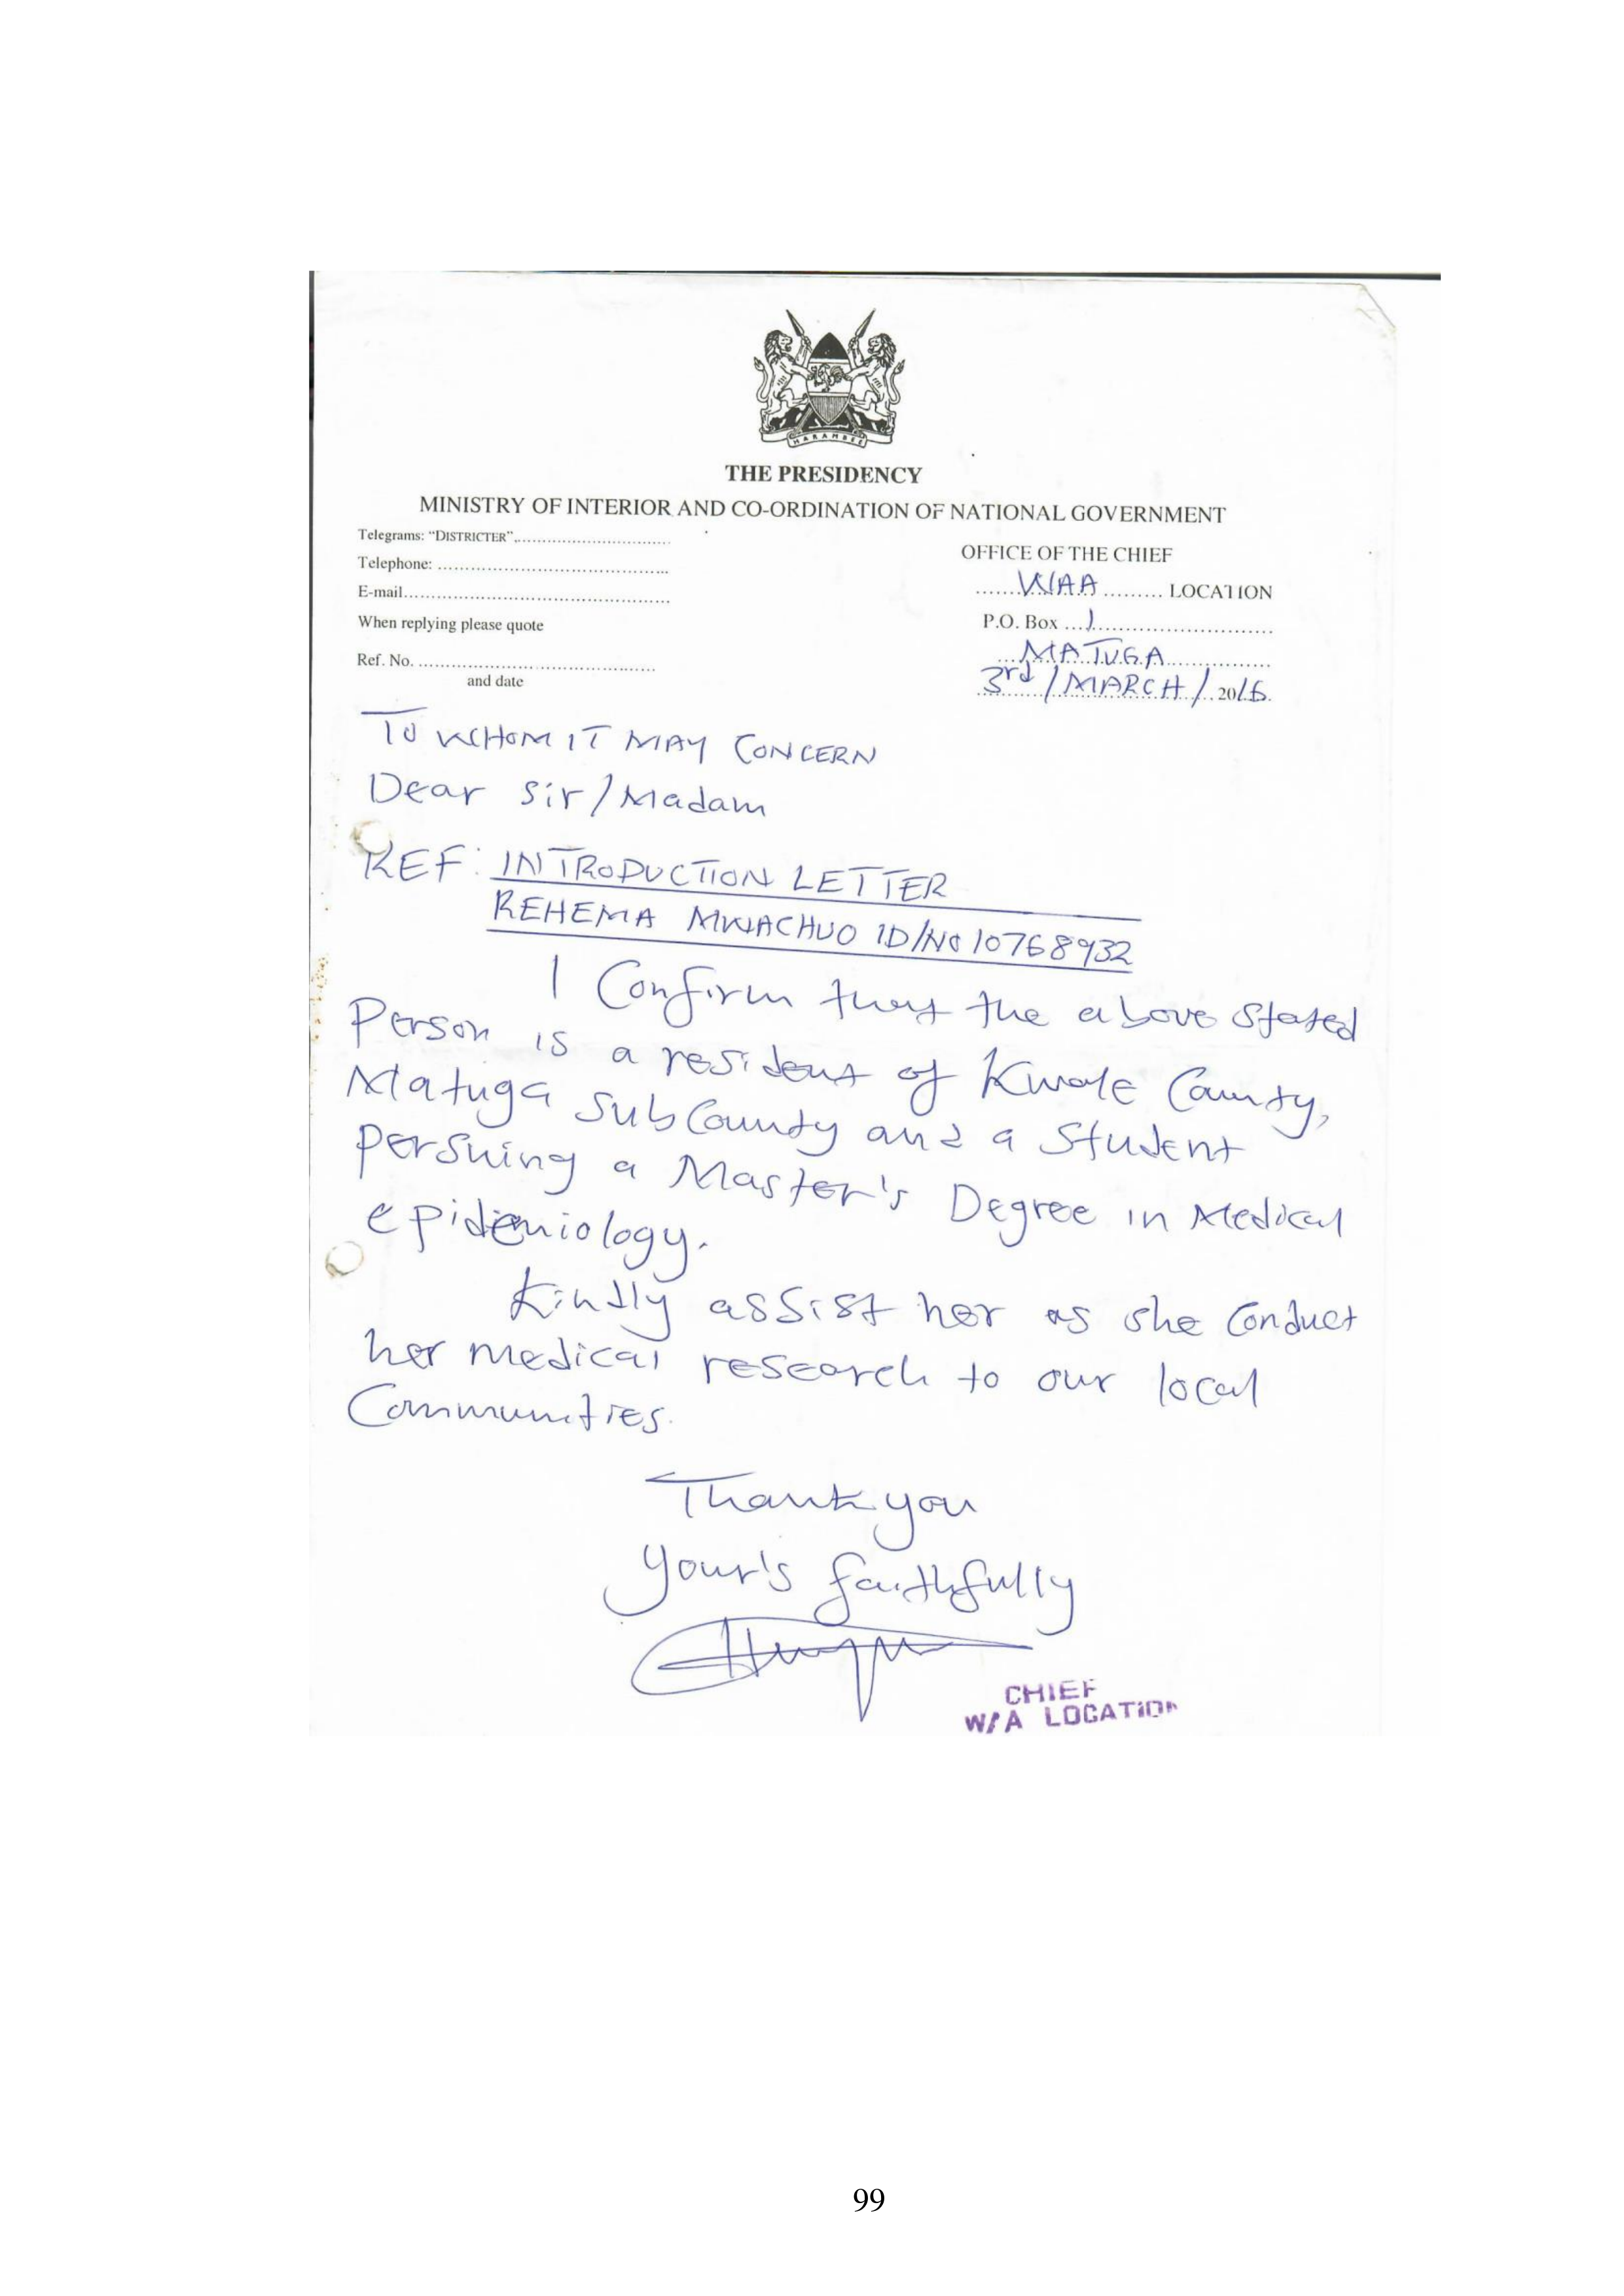 HARAMBEE
THE PRESIDENCY
MINISTRY OF INTERIOR AND CO-ORDINATION OF NATIONAL GOVERNMENT
Telegrams: "DISTRICTER"..............................
Telephone: ..........................................
E-mail................................................
When replying please quote
Ref. No. ..............................................
and date
OFFICE OF THE CHIEF
.......WAA ......... LOCATION
P.O. Box ...1..............................
...MATUGA..................
3rd / MARCH / 2016.
TO WHOM IT MAY CONCERN
Dear Sir/Madam
REF: INTRODUCTION LETTER
REHEMA MWACHUO ID/No 10768932
I Confirm that the above stated
Person is a resident of Kwale County,
Matuga SubCounty and a Student
persuing a Master's Degree in Medical
epidemiology.
Kindly assist her as she Conduct
her medical research to our local
Communities.
Thank you
Your's faithfully
CHIEF
WAA LOCATION
99